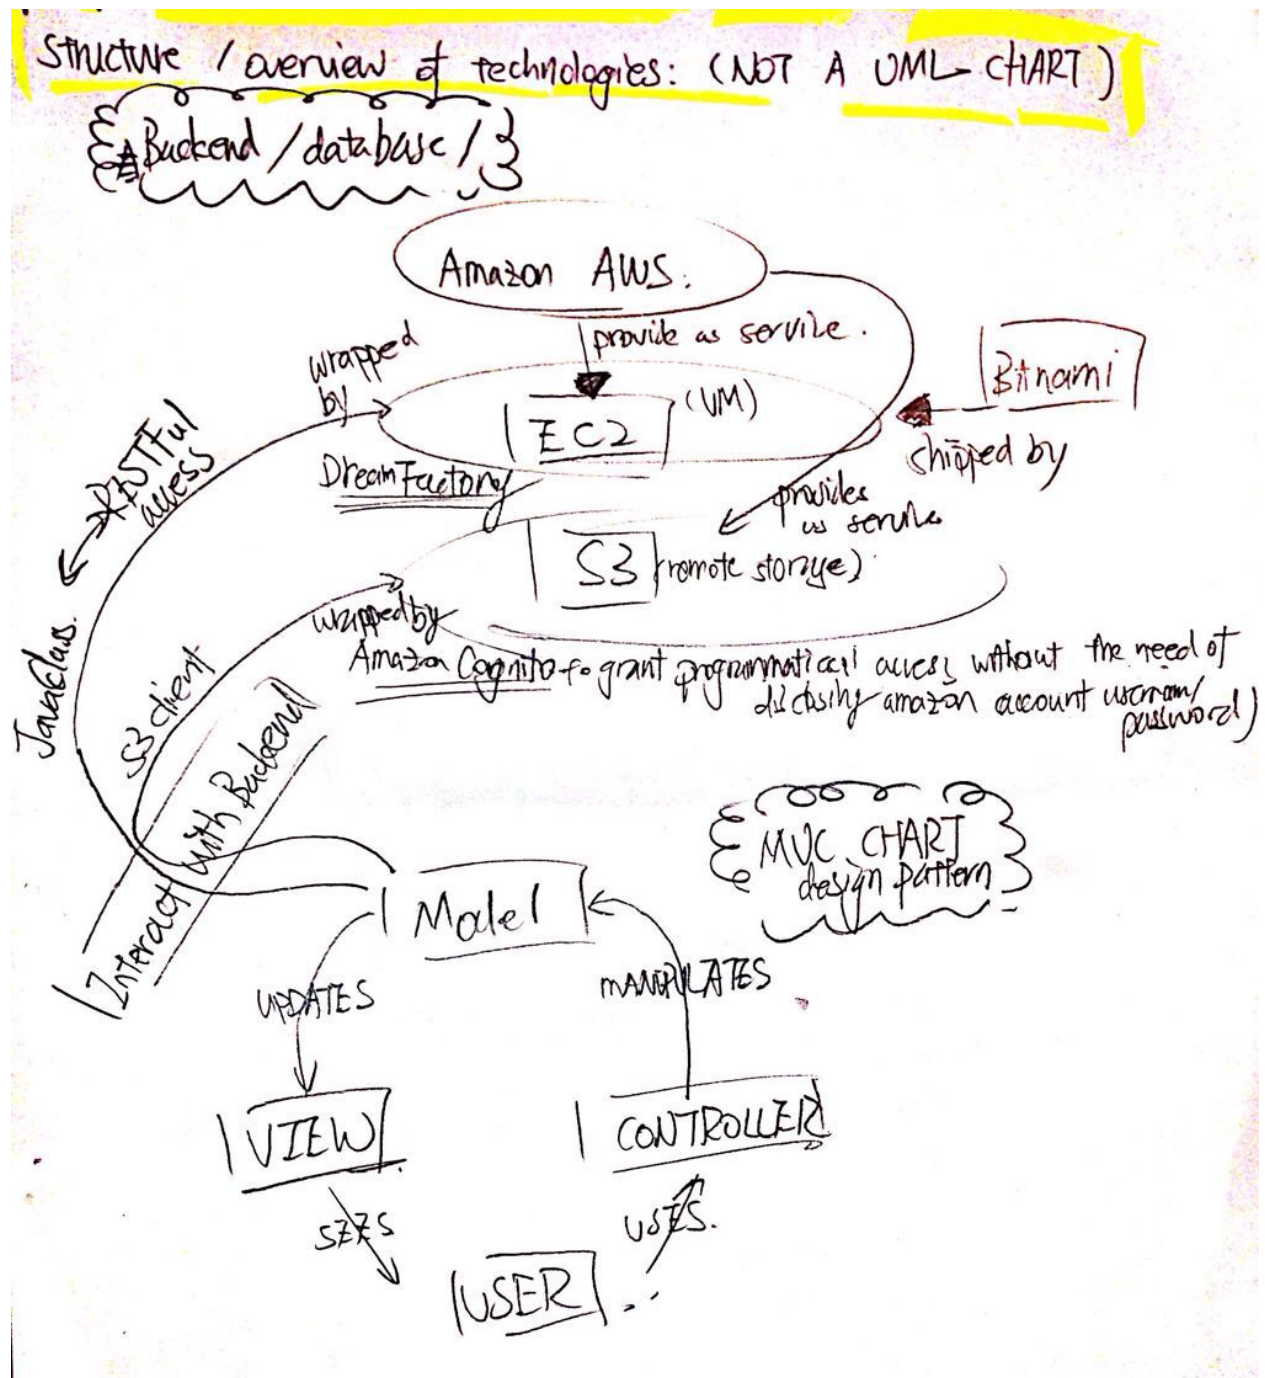 Structure / overview of technologies: (NOT A UML CHART)
Backend / database /
Amazon AWS.
provide as service.
wrapped
by
EC2
(VM)
Bitnami
shipped by
DreamFactory
RESTful
access
provides
as service
S3 (remote storage)
wrapped by
Amazon Cognito to grant programmatical access without the need of
disclosing amazon account usernam/
password)
JavaClass.
S3 client
Interact with Backend
MVC CHART
design pattern
Model
UPDATES
MANIPULATES
VIEW
CONTROLLER
SEES
USES.
USER